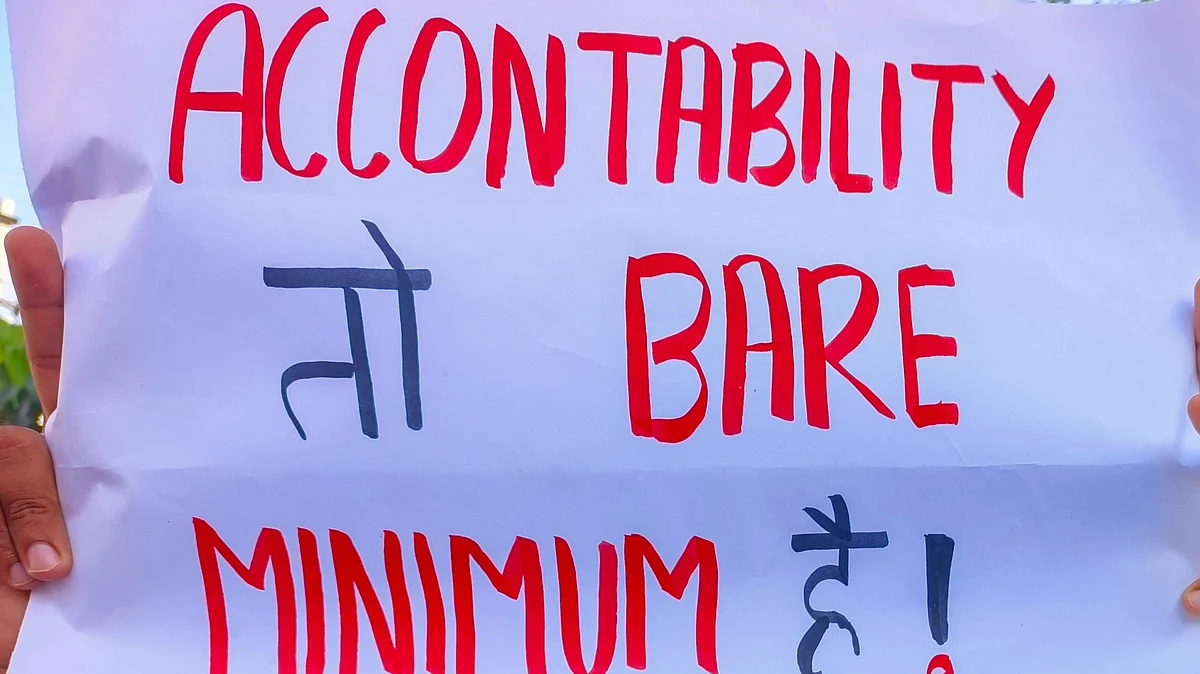 ACCONTABILITY
तो BARE
MINIMUM है!